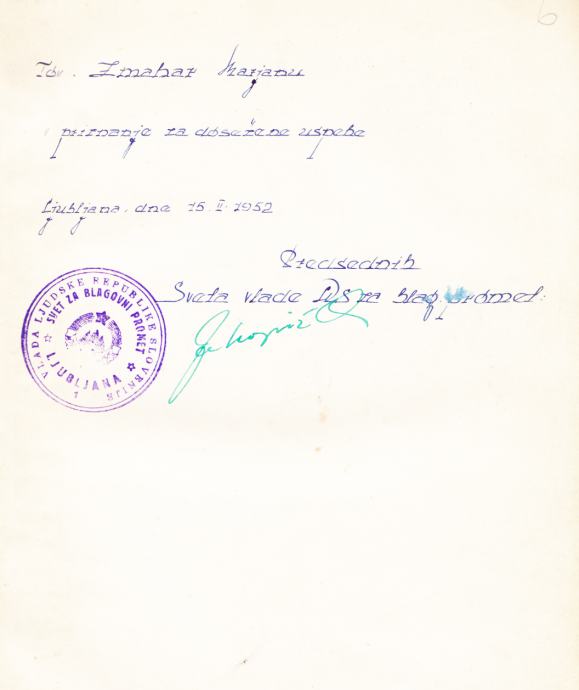 6
Tov. Zmahar Marjanu
priznanje za dosežene uspehe
Ljubljana, dne 15. II. 1952
Predsednik
Sveta vlade LRS za blag. promet:
VLADA LJUDSKE REPUBLIKE SLOVENIJE
SVET ZA BLAGOVNI PROMET
LJUBLJANA
1